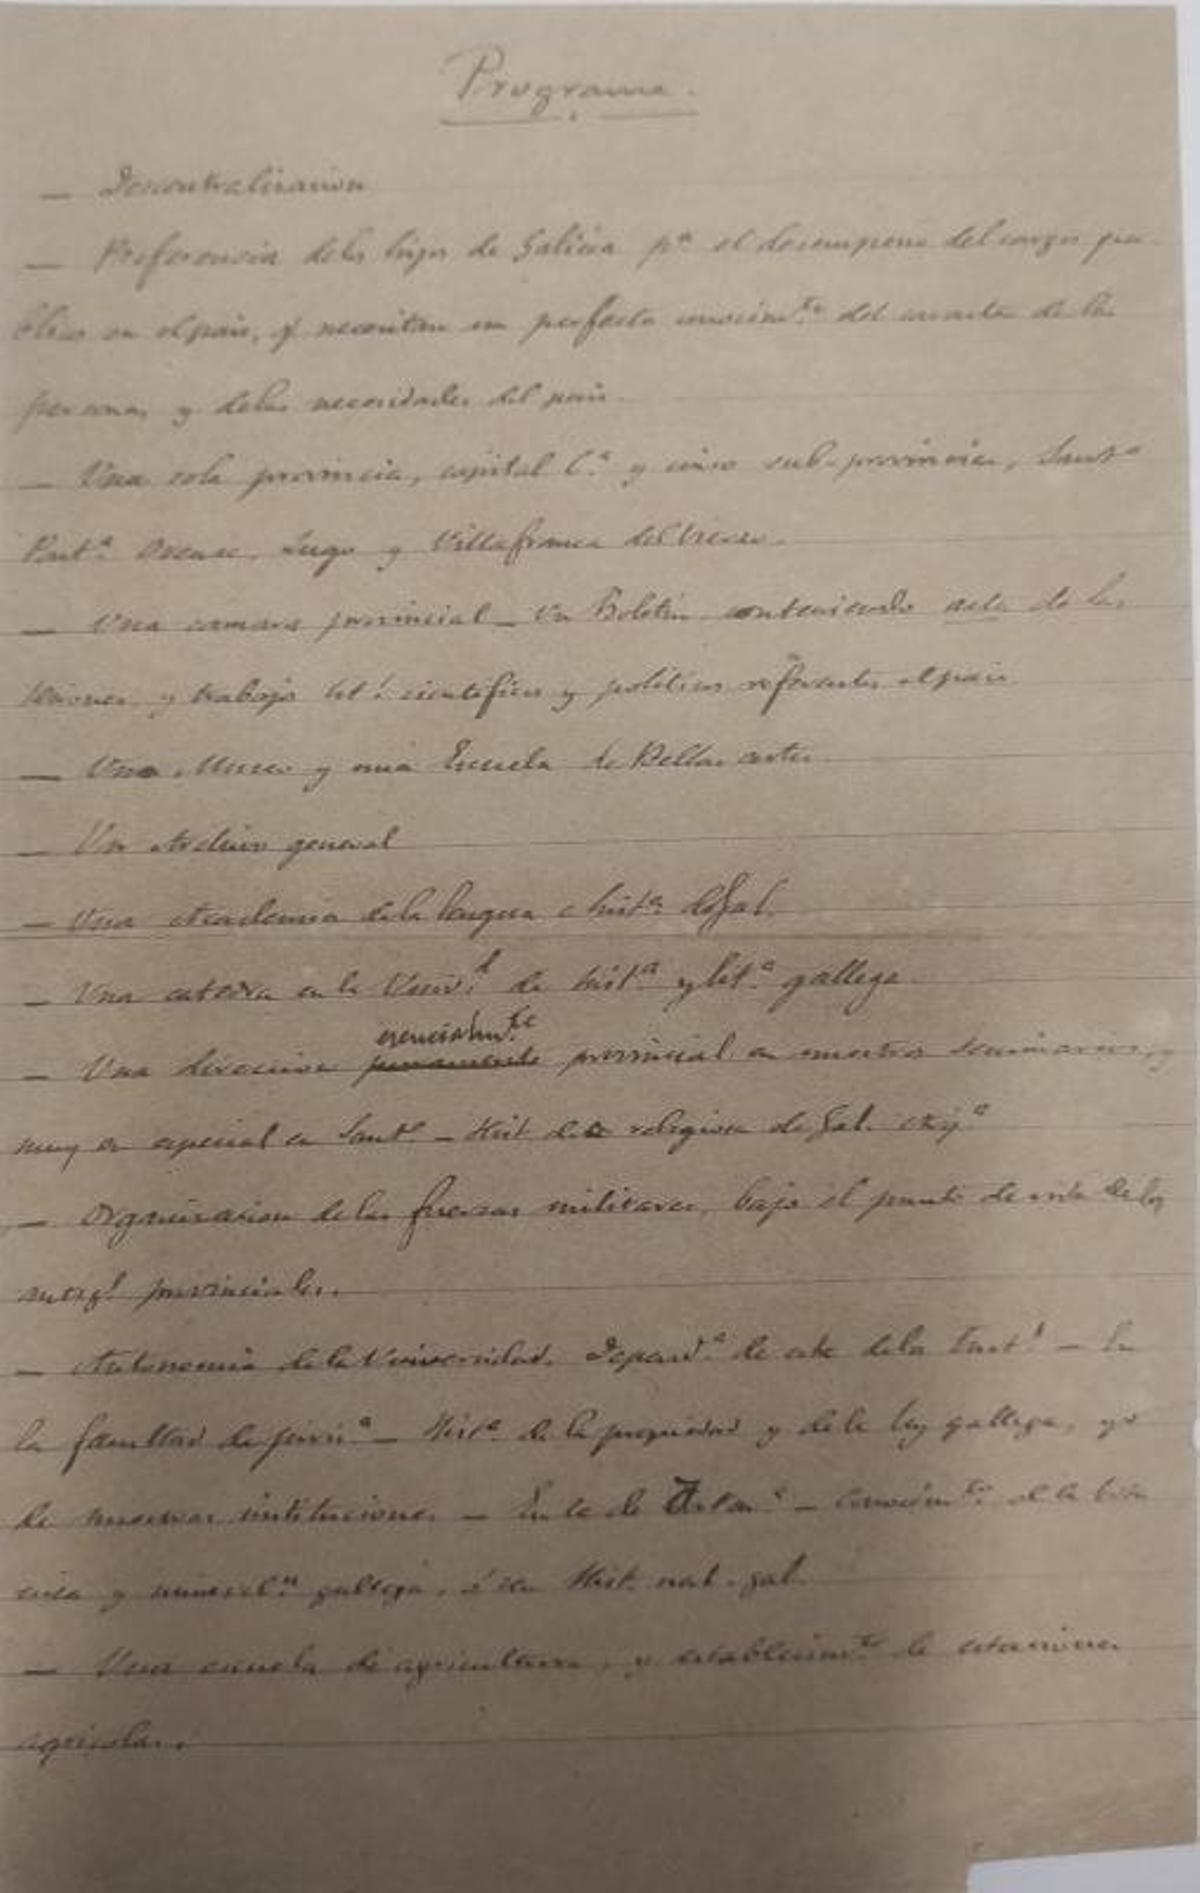 Programa.
— Descentralizacion
— Preferencia de los hijos de Galicia pª el desempeño del cargos pu
blicos en el pais, q. necesitan un perfecto conocimto del caracter de las
personas y de las necesidades del pais.
— Una sola provincia, capital C.ª y cinco sub-provincias, Santº
Pontª Orense, Lugo y Villafranca del Vierzo.
— Una camara provincial — Un Boletin conteniendo acta de las
sesiones, y trabajos lit! cientificos y politicos referentes al pais
— Un Museo y una Escuela de Bellas artes.
— Un Archivo general
— Una Academia de la lengua e histª de Gal.
— Una catedra en la Univ.d de histª y litª gallega.
esencialmte
— Una direccion puramente provincial en nuestros seminarios, y
muy en especial en Santº — Hist de la religion de Gal.
— Organizacion de las fuerzas militares, bajo el punto de vista de los
antig! provinciales.
— Autonomia de la Universidad. de este de la — En
la facultad de — Histª de la propiedad y de la ley gallega, y
de nuestras instituciones — En la de — Conocimto de la bota
nica y mineralª gallega, ó sea Hist. nat. gal.
— Una escuela de agricultura, y establecimto de estaciones
agricolas.